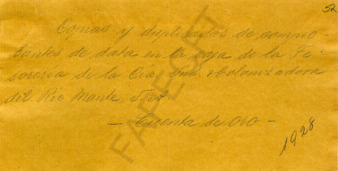 52
Copias y duplicados de compro-
bantes de data en la caja de la Te-
sorería de la Cía. Gral. Colonizadora
del Río Mante, S.
— Cuenta de Oro —
1928